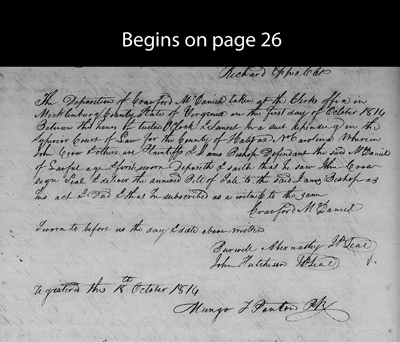 Begins on page 26
Richard Eppes Clk
The Deposition of Crawford McDaniel taken at the Clerks office in
Mecklenburg County State of Virginia on the first day of October 1814
Between the hours of twelve O'Clock & Sunset In a suit depending in the
Superior Court of Law for the County of Halifax No Carolina Wherein
John Crow & others are Plaintiffs & James Bishop Defendant the said McDaniel
of Lawful age & first sworn Deposeth & saith that he saw John Crow
sign Seal & deliver the annexed Bill of Sale to the said James Bishop as
his act & Deed & that he subscribed as a witness to the same
Crawford McDaniel
Sworn to before us the day & date above written
Burwell Abernathy JP Seal
John Hutcheson JP Seal
Registered this 18th October 1814
Mungo T Ponton PR